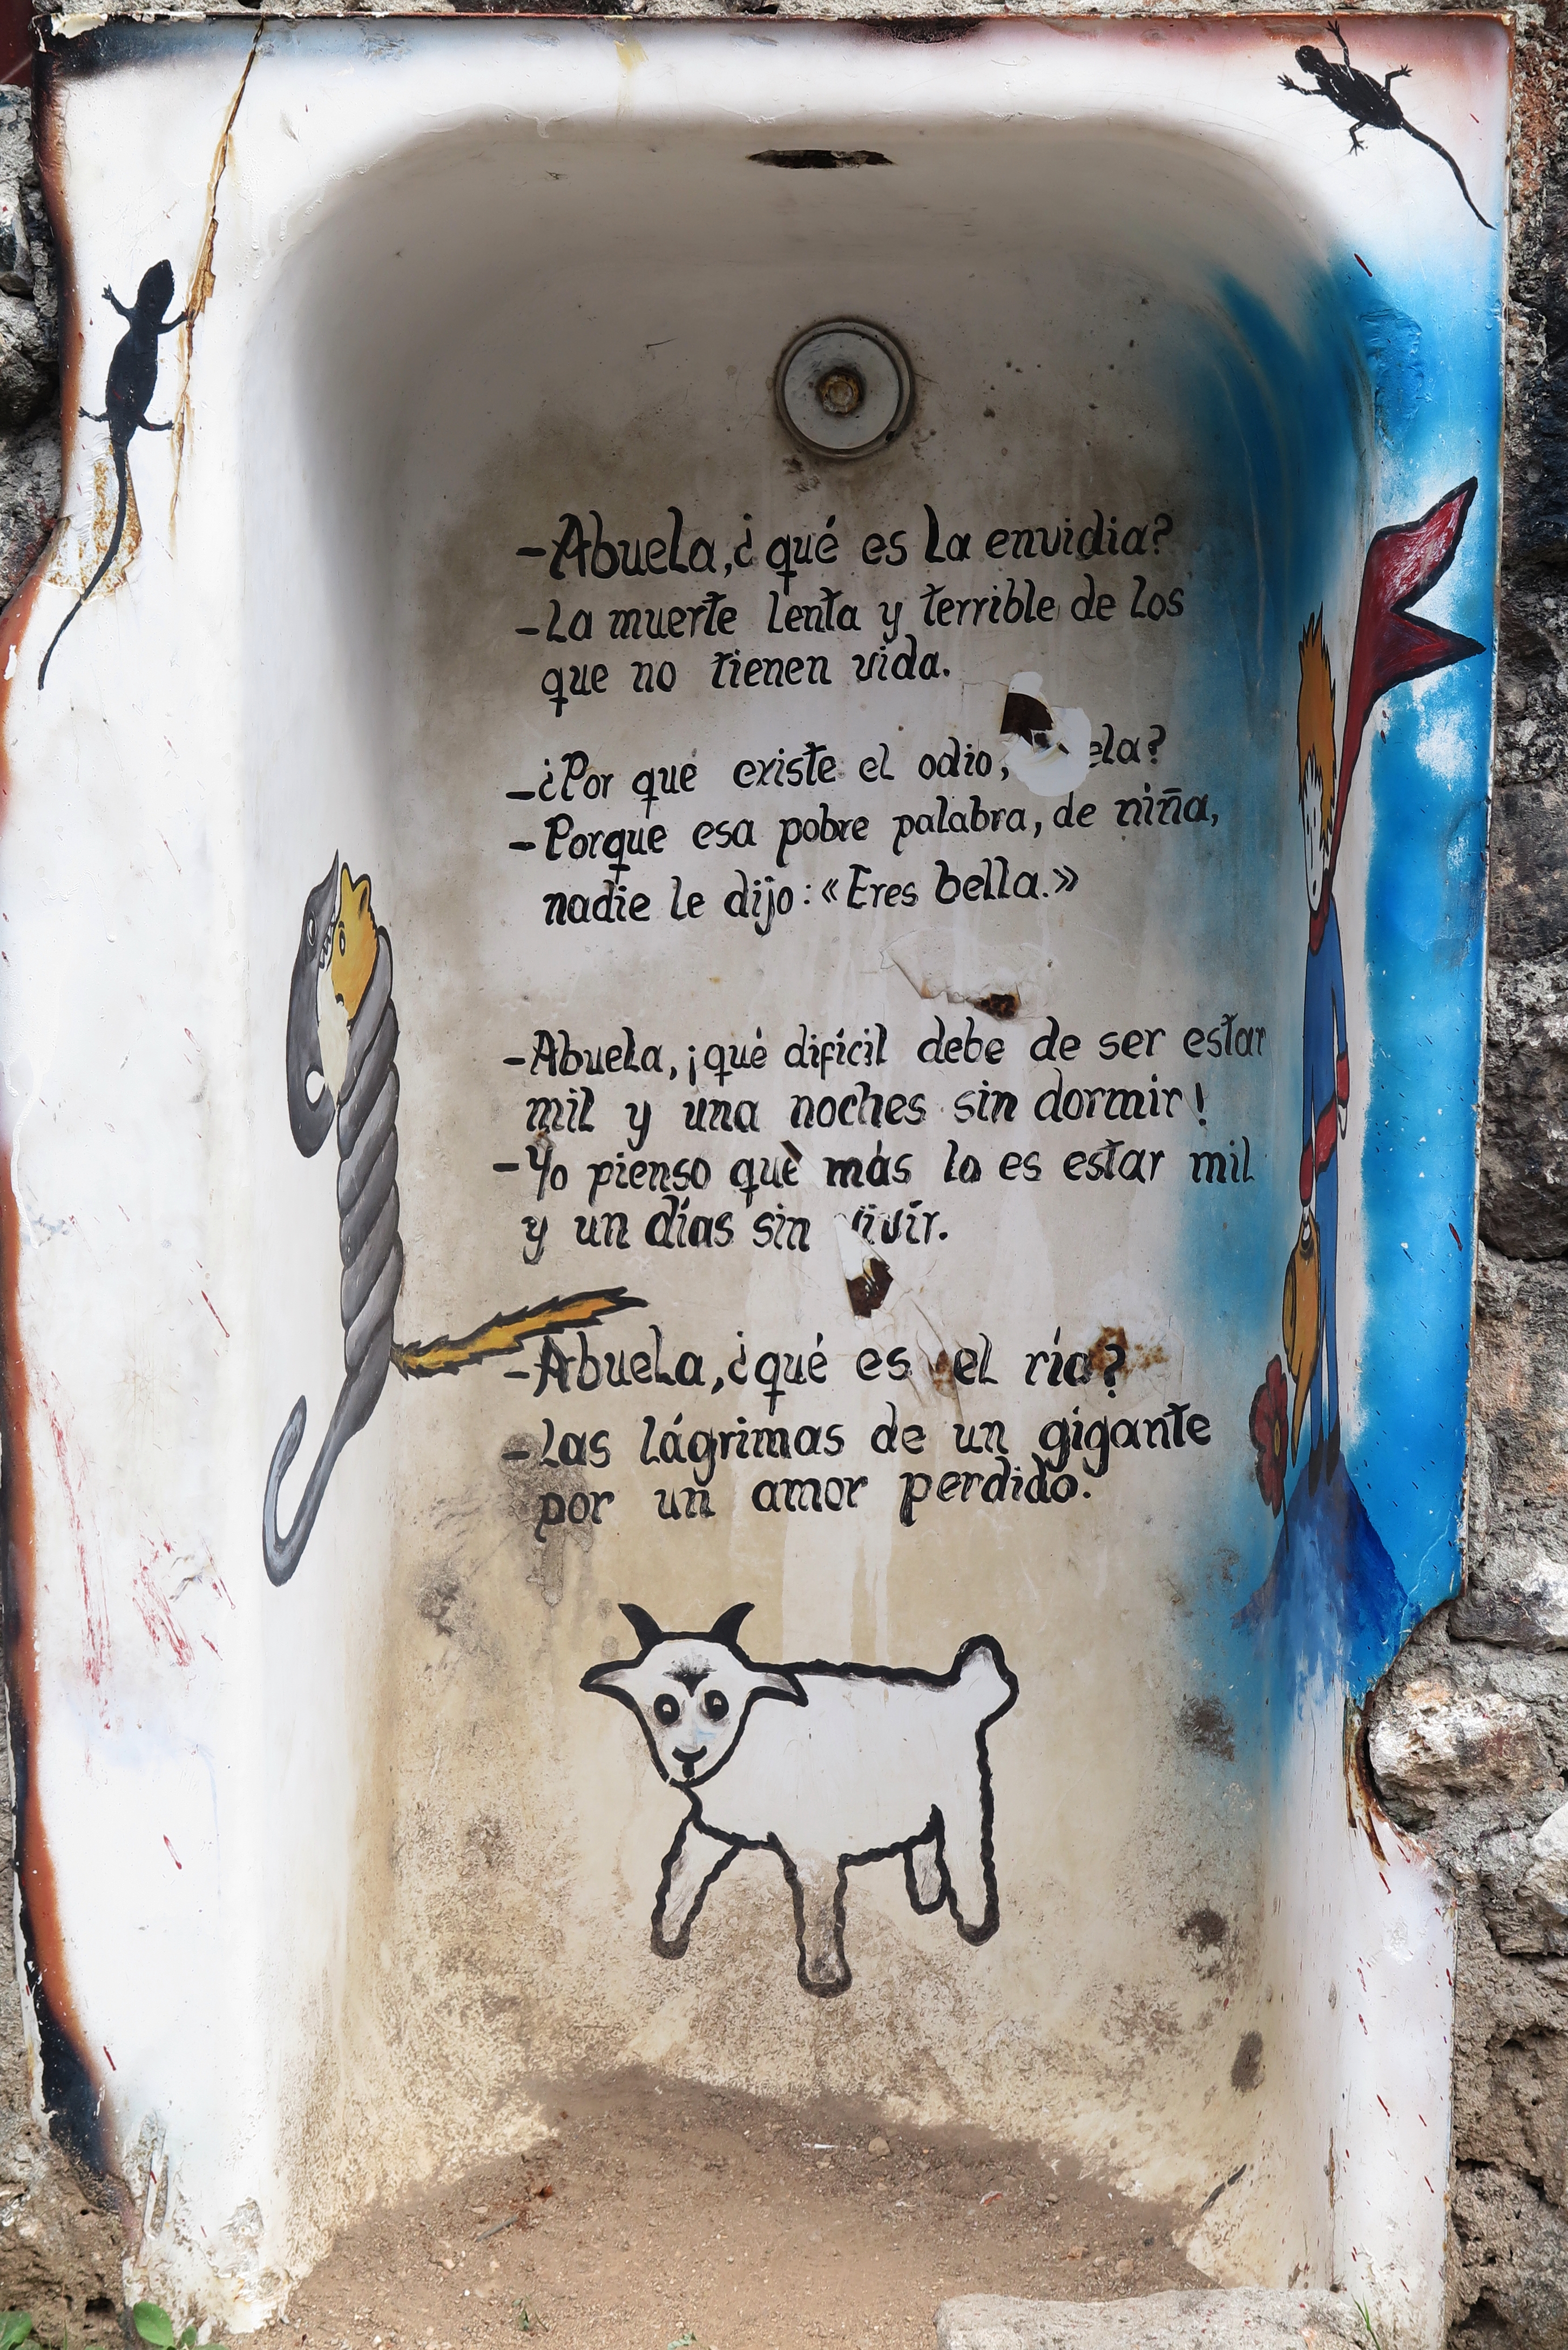 -Abuela, ¿qué es la envidia?
-La muerte lenta y terrible de los
que no tienen vida.
-¿Por qué existe el odio, ela?
-Porque esa pobre palabra, de niña,
nadie le dijo: «Eres bella.»
-Abuela, ¡qué difícil debe de ser estar
mil y una noches sin dormir!
-Yo pienso què más lo es estar mil
y un días sin vivir.
-Abuela, ¿qué es el río?
-Las lágrimas de un gigante
por un amor perdido.